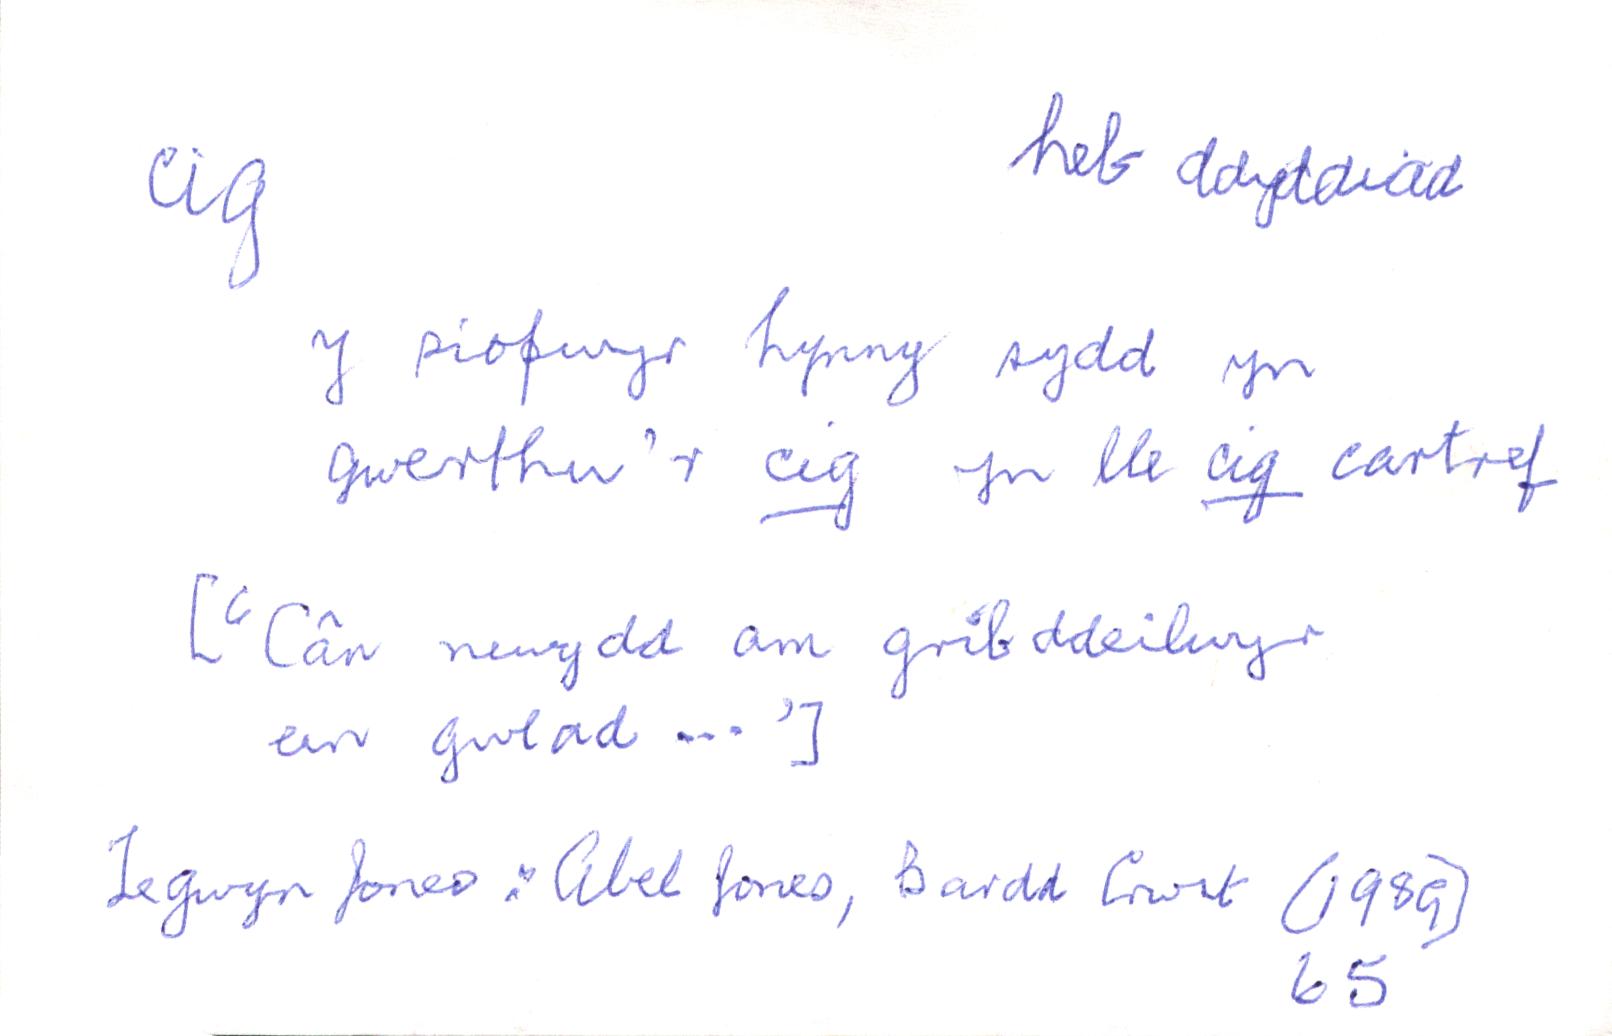 cig
heb ddyddiad
y siopwyr hynny sydd yn
gwerthu'r cig yn lle cig cartref
[“Cân newydd am gribddeilwyr
ein gwlad ...’]
Tegwyn Jones : Abel Jones, Bardd Crwst (1989)
65